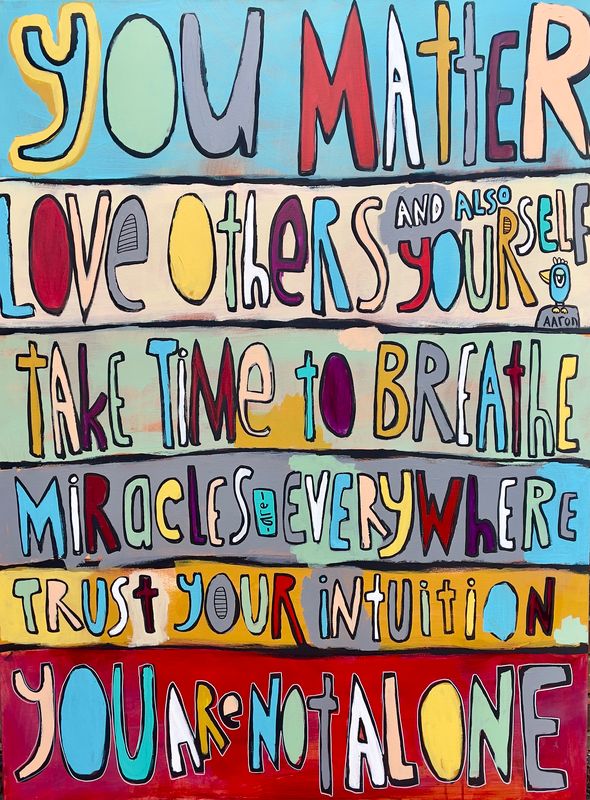 YOU MAttER
LOVe OtheRS AND ALSO YOURSELF
AARON
tAkE TiMe tO BREAthE
MiRAcLES -are- EVERYWhERE
TRUSt YOUR iNtUitiON
YOU ARe NOt ALONE